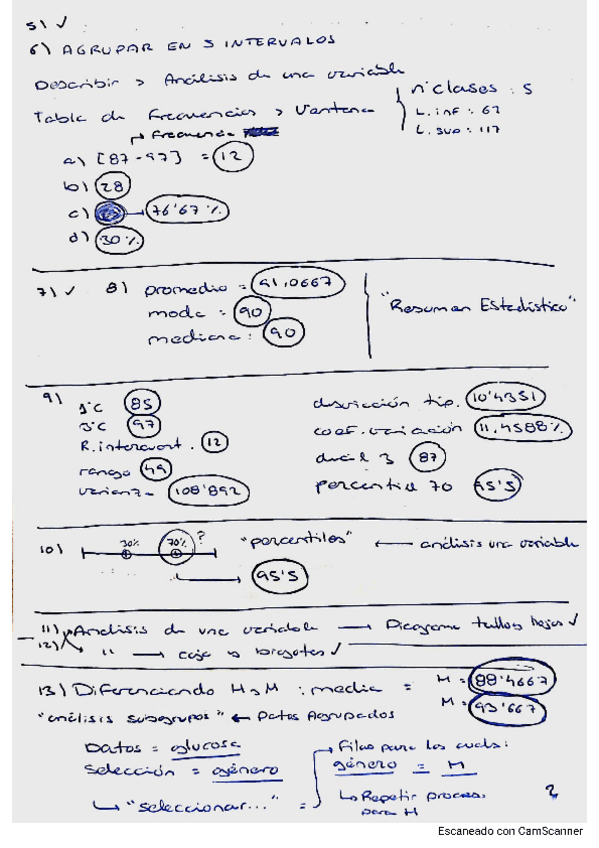 5) ✓
6) AGRUPAR EN 5 INTERVALOS
Describir > Análisis de una variable
Tabla de Frecuencias > Ventana { nº clases : 5
L. inf : 67
L. sup : 117
↳ Frecuencia
a) [87-97] = 12
b) 28
c) → 76'67%
d) 30%
7) ✓ 8) promedio = 91,0667
moda : 90
mediana : 90
"Resumen Estadístico"
9) 1ºC 85
3ºC 97
R. intercuart. 12
rango 49
varianza 108'892
desviación típ. 10'4351
coef. variación 11,4588%
decil 3 87
percentil 70 95'5
10) 30% 70% ? "percentiles" ← análisis una variable
→ 95'5
11) Análisis de una variable → Diagrama tallos hojas ✓
12) " → caja y bigotes ✓
13) Diferenciando H y M : media = M = 88'4667
M = 93'667
"análisis subgrupos" ← Datos Agrupados
Datos = glucosa
Selección = género
↳ "seleccionar..." =
→ Filas para las cuales:
género = M
↳ Repetir proceso
para H
2
Escaneado con CamScanner